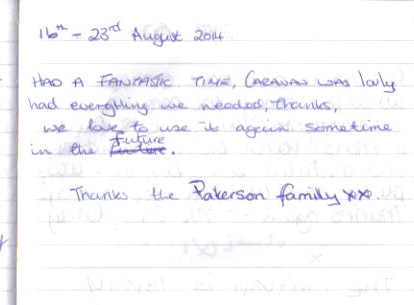 16th - 23rd August 2014
HAD A FANTASTIC TIME, CARAVAN WAS lovly
had everything we needed, thanks,
we love to use it again sometime
future
in the future.
Thanks the Pakerson family xx.